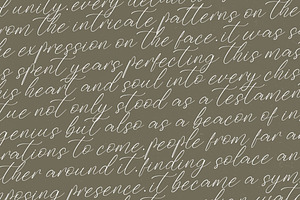 d unity.every detail
rom the intricate patterns on the
le expression on the face.it was s
s spent years perfecting this mas
his heart and soul into every chis
tue not only stood as a testamen
genius but also as a beacon of in
rations to come.people from far a
ther around it.finding solace an
posing presence.it became a sym